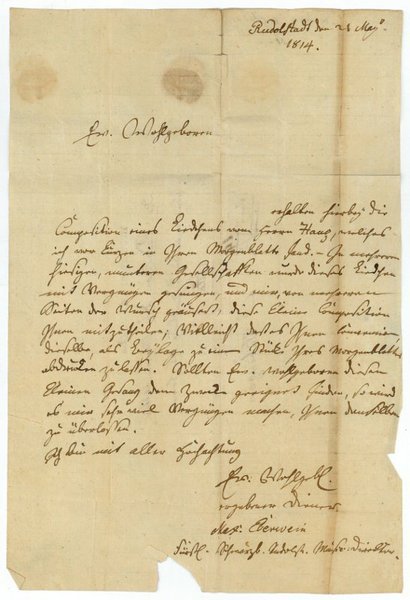 Rudolstadt den 21 May
1814.
Ew. Wohlgeboren
erhalten hierbey die
Composition eines Liedchens vom Herrn Haug, welches
ich vor kurzen in Ihrem Morgenblatte fand. – In mehrern
hiesigen, muntern Gesellschaften wurde dieses Liedchen
mit Vergnügen gesungen, und mir, von mehrern
Seiten der Wunsch geäußert, diese kleine Composition
Ihnen mitzutheilen, Vielleicht daß es Ihnen
dieselbe, als Beylage zu einem Stück Ihres Morgenblattes
abdruken zu lassen. Sollten Ew. Wohlgeboren diesen
kleinen Gesang dem Zwecke geeignet finden, so wird
es mir sehr viel Vergnügen machen, Ihnen denselben
zu überlassen.
Ich bin mit aller Hochachtung
Ew. Wohlgeb.
ergebener Diener
Max. Eberwein
Fürstl. Schwarzb. Rudolst. Musik-Direktor.